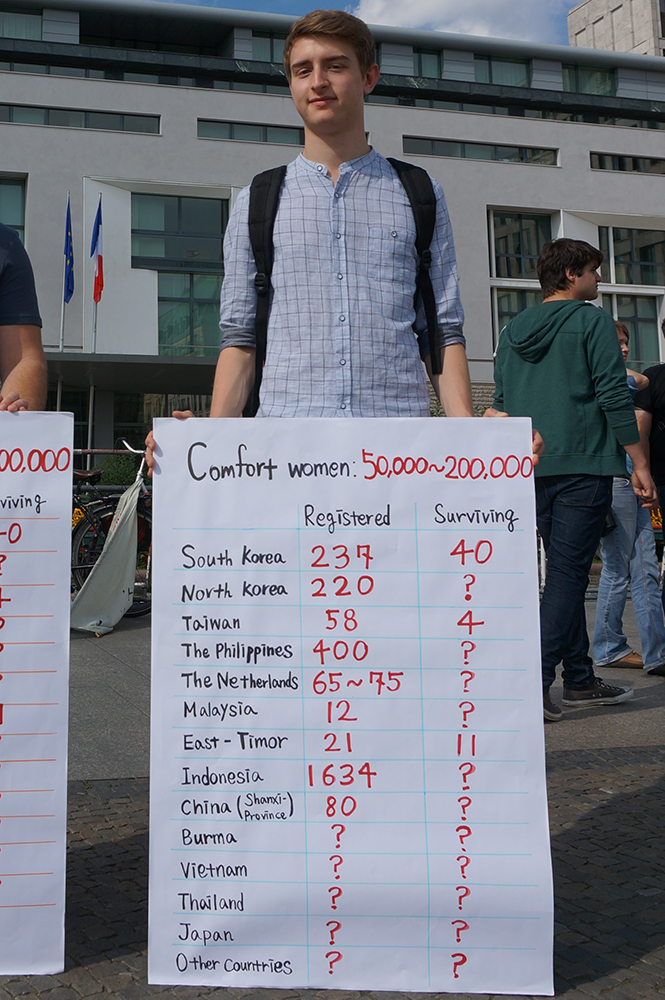 Comfort women: 50,000~200,000
Registered Surviving
South Korea 237 40
North Korea 220 ?
Taiwan 58 4
The Philippines 400 ?
The Netherlands 65~75 ?
Malaysia 12 ?
East-Timor 21 11
Indonesia 1634 ?
China (Shanxi-Province) 80 ?
Burma ? ?
Vietnam ? ?
Thailand ? ?
Japan ? ?
Other Countries ? ?
00,000
viving